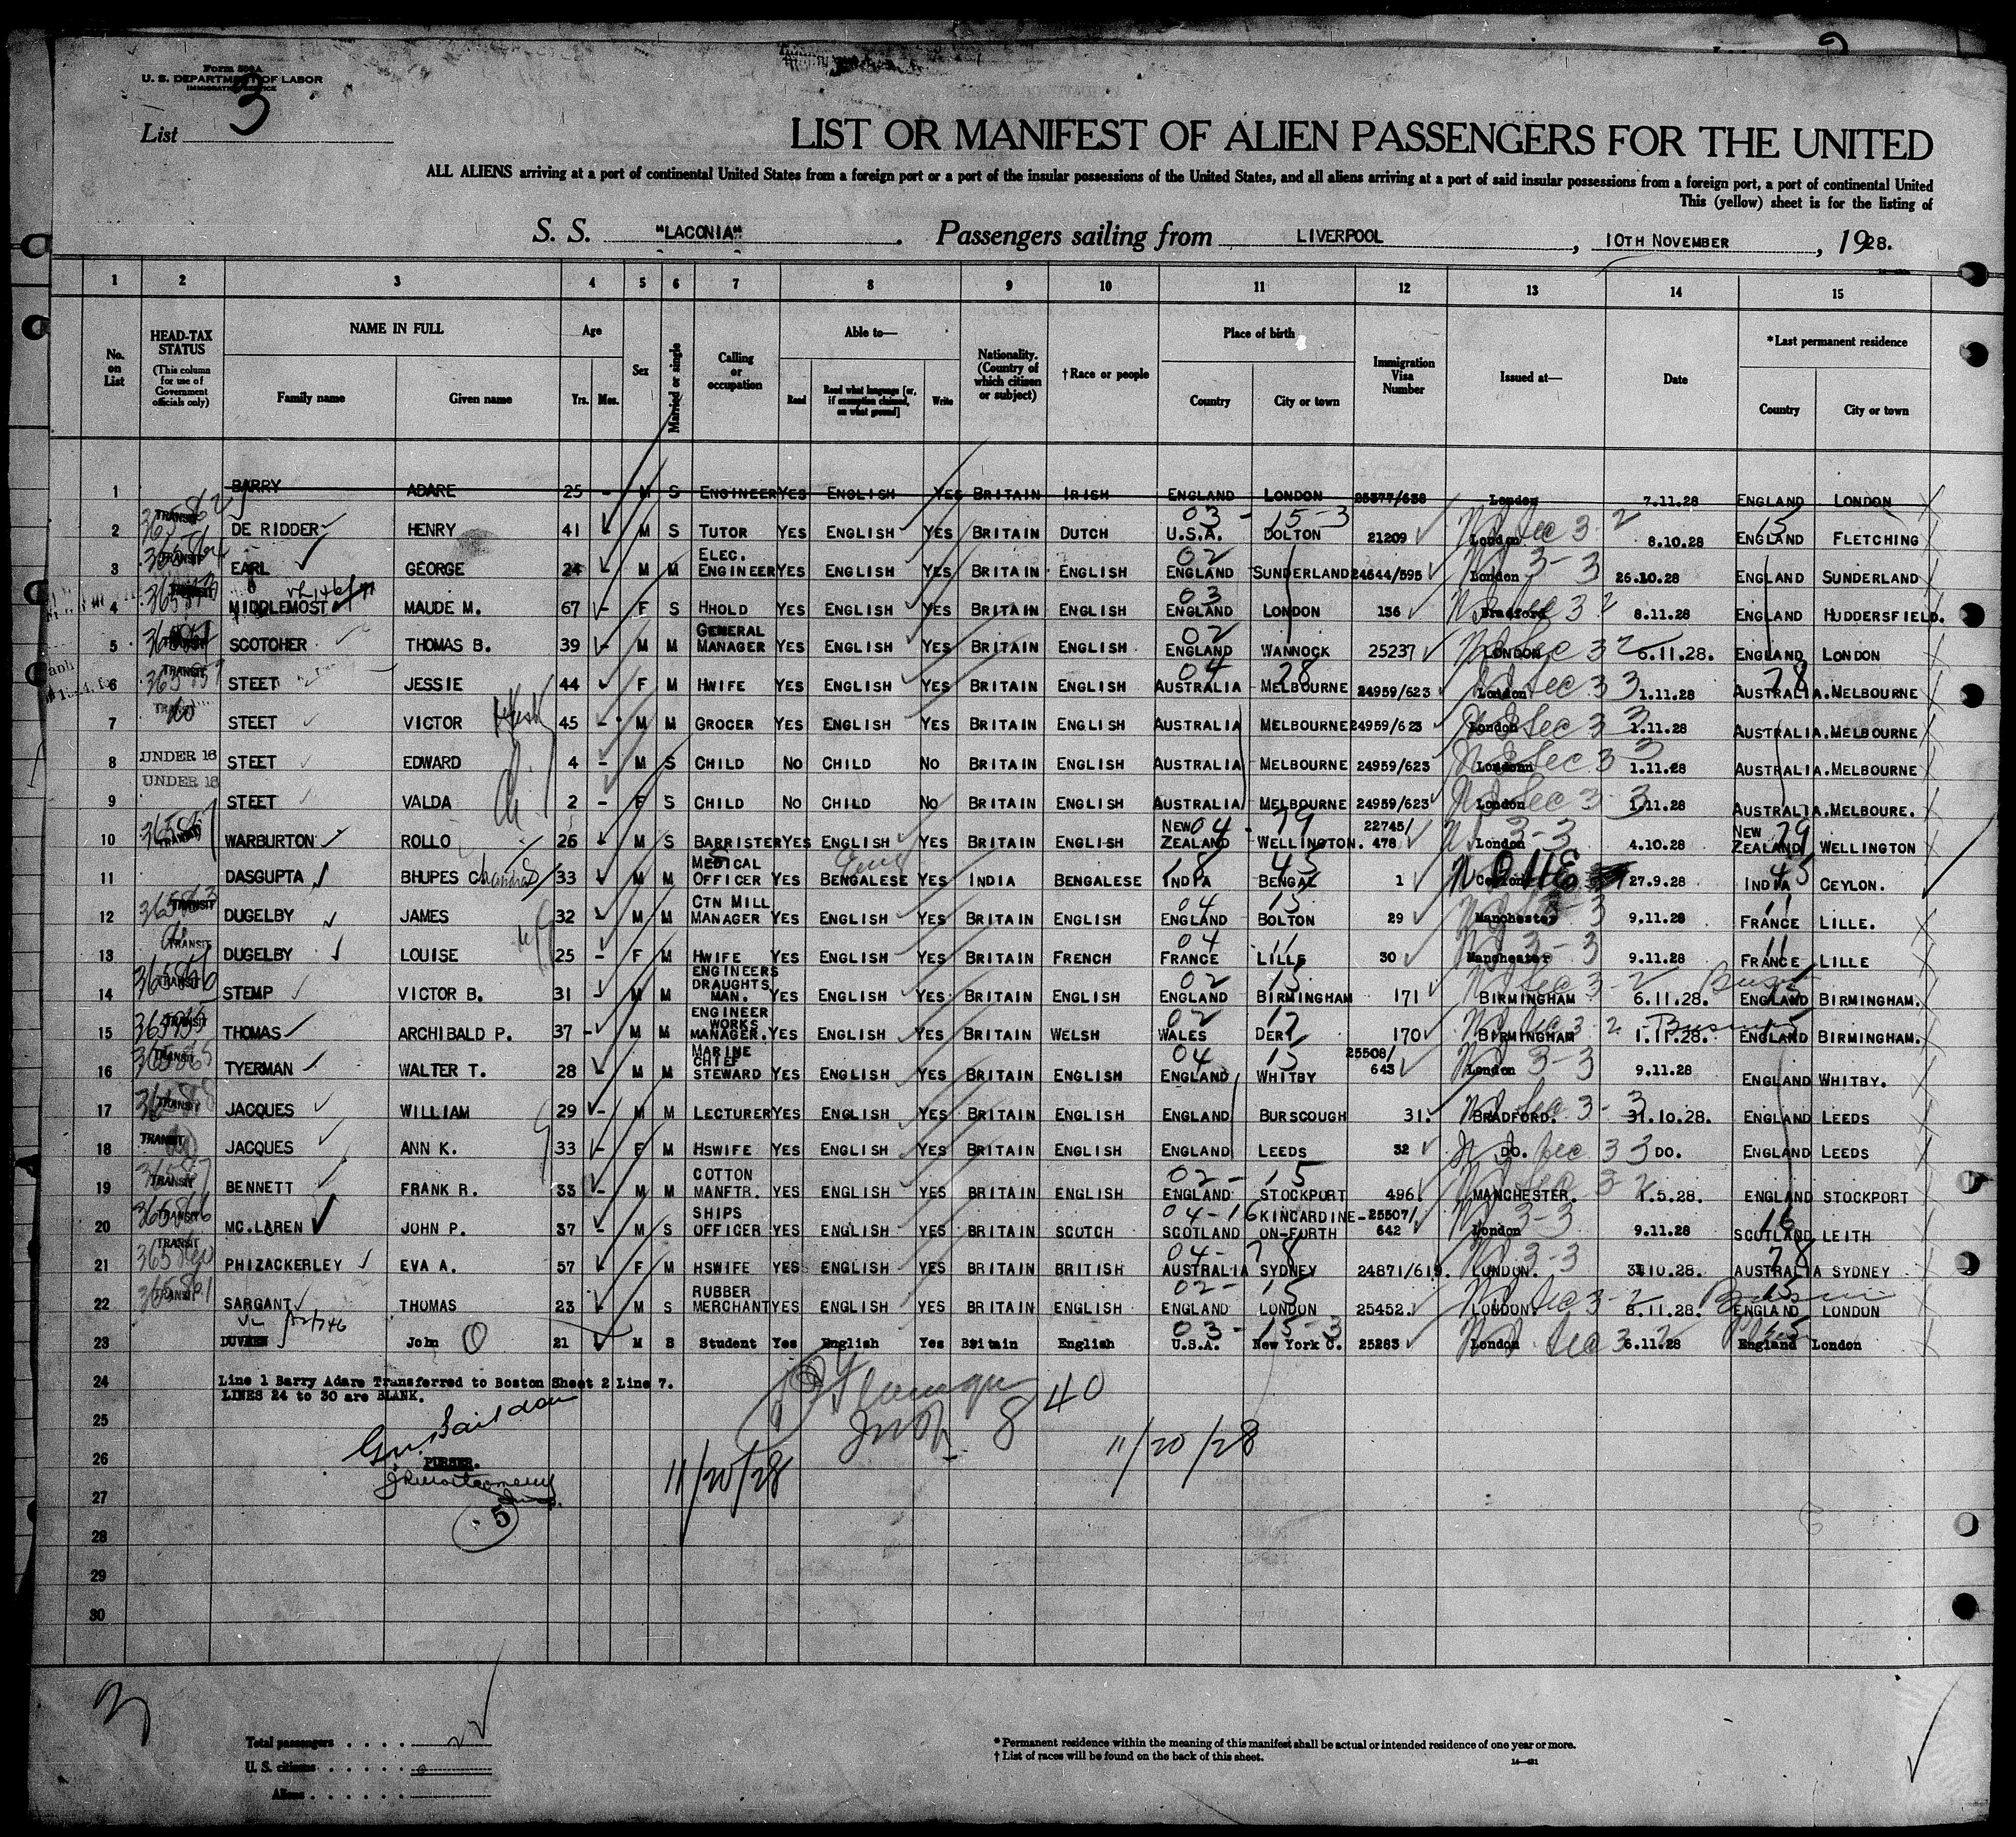 Form 500 A
U. S. DEPARTMENT OF LABOR
IMMIGRATION SERVICE
List 3
LIST OR MANIFEST OF ALIEN PASSENGERS FOR THE UNITED
ALL ALIENS arriving at a port of continental United States from a foreign port or a port of the insular possessions of the United States, and all aliens arriving at a port of said insular possessions from a foreign port, a port of continental United
This (yellow) sheet is for the listing of
S. S. "LACONIA" . Passengers sailing from LIVERPOOL , 10TH NOVEMBER , 1928.
1 2 3 4 5 6 7 8 9 10 11 12 13 14 15
No. on List
HEAD-TAX STATUS (This column for use of Government officials only)
NAME IN FULL Family name Given name
Age Yrs. Mos.
Sex
Married or single
Calling or occupation
Able to— Read Read what language [or, if exemption claimed, on what ground] Write
Nationality. (Country of which citizen or subject)
†Race or people
Place of birth Country City or town
Immigration Visa Number
Issued at—
Date
*Last permanent residence Country City or town
1 BARRY ADARE 25 - M S ENGINEER YES ENGLISH YES BRITAIN IRISH ENGLAND LONDON 25577/638 London 7.11.28 ENGLAND LONDON
2 TRANSIT DE RIDDER HENRY 41 M S TUTOR YES ENGLISH YES BRITAIN DUTCH U.S.A. BOLTON 21209 London 8.10.28 ENGLAND FLETCHING
3 TRANSIT EARL GEORGE 24 M M ELEC. ENGINEER YES ENGLISH YES BRITAIN ENGLISH ENGLAND SUNDERLAND 24644/595 London 26.10.28 ENGLAND SUNDERLAND
4 TRANSIT MIDDLEMOST MAUDE M. 67 - F S HHOLD YES ENGLISH YES BRITAIN ENGLISH ENGLAND LONDON 136 Bradford 8.11.28 ENGLAND HUDDERSFIELD.
5 TRANSIT SCOTCHER THOMAS B. 39 - M M GENERAL MANAGER YES ENGLISH YES BRITAIN ENGLISH ENGLAND WANNOCK 25237 LONDON 6.11.28. ENGLAND LONDON
6 TRANSIT STEET JESSIE 44 F M HWIFE YES ENGLISH YES BRITAIN ENGLISH AUSTRALIA MELBOURNE 24959/623 London 1.11.28 AUSTRALIA. MELBOURNE
7 TRANSIT STEET VICTOR 45 - M M GROCER YES ENGLISH YES BRITAIN ENGLISH AUSTRALIA MELBOURNE 24959/623 London 1.11.28 AUSTRALIA. MELBOURNE
8 UNDER 16 STEET EDWARD 4 - M S CHILD NO CHILD NO BRITAIN ENGLISH AUSTRALIA MELBOURNE 24959/623 Londonn 1.11.28 AUSTRALIA. MELBOURNE
9 UNDER 16 STEET VALDA 2 - F S CHILD NO CHILD NO BRITAIN ENGLISH AUSTRALIA MELBOURNE 24959/623 London 1.11.28 AUSTRALIA. MELBOURE.
10 TRANSIT WARBURTON ROLLO 26 M S BARRISTER YES ENGLISH YES BRITAIN ENGLISH NEW ZEALAND WELLINGTON. 22745/ 478 London 4.10.28 NEW ZEALAND WELLINGTON
11 DASGUPTA BHUPES Chandra 33 M M MEDICAL OFFICER YES BENGALESE YES INDIA BENGALESE INDIA BENGAL 1 Ceylon 27.9.28 INDIA CEYLON.
12 TRANSIT DUGELBY JAMES 32 M M CTN MILL MANAGER YES ENGLISH YES BRITAIN ENGLISH ENGLAND BOLTON 29 Manchester 9.11.28 FRANCE LILLE.
13 TRANSIT DUGELBY LOUISE 25 - F M HWIFE YES ENGLISH YES BRITAIN FRENCH FRANCE LILLE 30 Manchester 9.11.28 FRANCE LILLE
14 TRANSIT STEMP VICTOR B. 31 M M ENGINEERS DRAUGHTS MAN. YES ENGLISH YES. BRITAIN ENGLISH ENGLAND BIRMINGHAM 171 BIRMINGHAM 6.11.28. ENGLAND BIRMINGHAM.
15 TRANSIT THOMAS ARCHIBALD P. 37 - M M ENGINEER WORKS MANAGER. YES ENGLISH YES BRITAIN WELSH WALES DERY 170 BIRMINGHAM 1.11.28. ENGLAND BIRMINGHAM.
16 TRANSIT TYERMAN WALTER T. 28 M M MARINE CHIEF STEWARD YES ENGLISH YES BRITAIN ENGLISH ENGLAND WHITBY 25508/ 643 London 9.11.28 ENGLAND WHITBY.
17 TRANSIT JACQUES WILLIAM 29 - M M LECTURER YES ENGLISH YES BRITAIN ENGLISH ENGLAND BURSCOUGH 31. BRADFORD. 31.10.28. ENGLAND LEEDS
18 TRANSIT JACQUES ANN K. 33 - F M HSWIFE YES ENGLISH YES BRITAIN ENGLISH ENGLAND LEEDS 32 DO. DO. ENGLAND LEEDS
19 TRANSIT BENNETT FRANK R. 33 - M M COTTON MANFTR. YES ENGLISH YES BRITAIN ENGLISH ENGLAND STOCKPORT 496. MANCHESTER. 1.5.28. ENGLAND STOCKPORT
20 TRANSIT MC.LAREN JOHN P. 37 - M S SHIPS OFFICER YES ENGLISH YES BRITAIN SCOTCH SCOTLAND KINCARDINE-ON-FORTH 25507/ 642 London 9.11.28 SCOTLAND LEITH
21 TRANSIT PHIZACKERLEY EVA A. 57 F M HSWIFE YES ENGLISH YES BRITAIN BRITISH AUSTRALIA SYDNEY 24871/619. LONDON. 31.10.28. AUSTRALIA SYDNEY
22 TRANSIT SARGANT THOMAS 23 M S RUBBER MERCHANT YES ENGLISH YES BRITAIN ENGLISH ENGLAND LONDON 25452. LONDON. 8.11.28. ENGLAND LONDON
23 DUVEEN John 21 M S Student Yes English Yes Britain English U.S.A. New York C. 25283 London 6.11.28 England London
24 Line 1 Barry Adare Transferred to Boston Sheet 2 Line 7.
LINES 24 to 30 are BLANK.
25
26 PURSER.
11/20/28 11/20/28
27
28 5
29
30
Total passengers . . . .
U. S. citizens . . . . . .
Aliens . . . . . . . .
* Permanent residence within the meaning of this manifest shall be actual or intended residence of one year or more.
† List of races will be found on the back of this sheet.